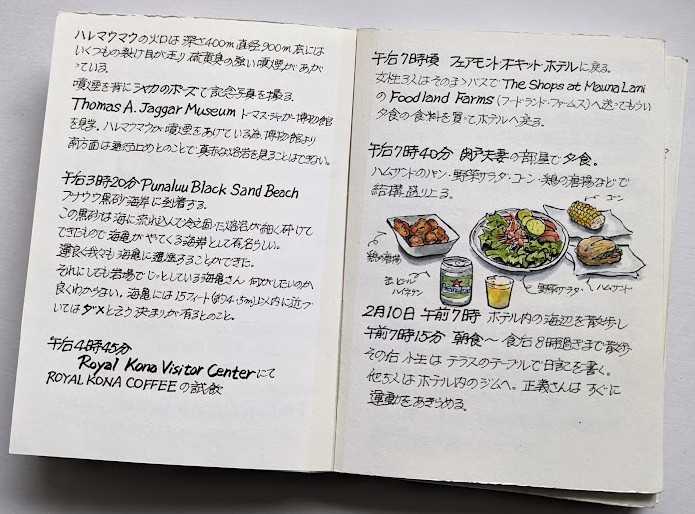 ハレマウマウの火口は 深さ400m 直径900m 底には
いくつもの裂け目が走り 硫黄臭の強い噴煙があが
っている。
噴煙を背に シャカのポーズで記念写真を撮る。
Thomas A. Jaggar Museum トーマス・ジャガー博物館
を見学。ハレマウマウが噴煙をあげている為 博物館より
南方面は通行止めとのことで 真赤な溶岩を見ることはできない。
午后3時20分 Punaluu Black Sand Beach
プナルウ黒砂海岸に到着する。
この黒砂は海に流れ込んで冷え固った溶岩が細く砕けて
できたもので 海亀がやってくる海岸として有名らしい。
運良く我々も海亀に遭遇することができた。
それにしても岩場でじっとしている海亀さん 何がしたいのか
良くわからない。海亀には15フィート(約4.5m)以内に近づ
いてはダメと云う決まりが有るとのこと。
午后4時45分
Royal Kona Visitor Center にて
ROYAL KONA COFFEE の試飲
午后7時頃 フェアモント・オーキッド・ホテルに戻る。
女性3人はそのままバスで The Shops at Mauna Lani
の Foodland Farms (フードランド・ファームス)へ送ってもらい
夕食の食料を買ってホテルへ戻る。
午后7時40分 夫妻の部屋で夕食。
ハムサンドのパン・野菜サラダ・コーン・鶏の唐揚などで
結構盛り上る。
コーン
鶏の唐揚
缶ビール
ハイネケン
野菜サラダ
ハムサンド
2月10日 午前7時 ホテル内の海辺を散歩し
午前7時15分 朝食〜 食后8時過ぎまで散歩
その后 小生は テラスのテーブルで日記を書く。
他5人はホテル内のジムへ。正義さんは すぐに
運動をあきらめる。